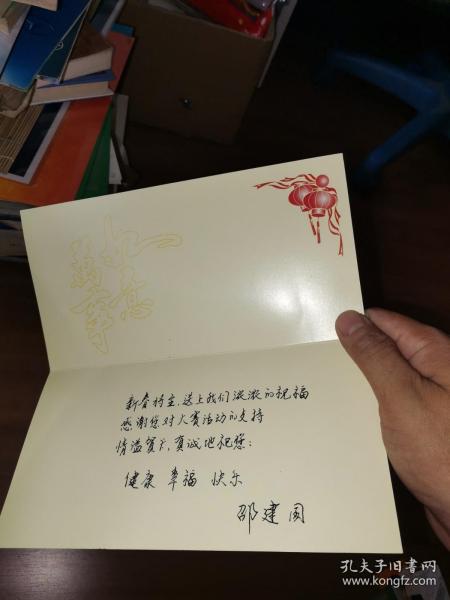 萬事如意
新春将至，送上我们深深的祝福
感谢您对大赛活动的支持
情溢贺卡，真诚地祝您：
健康 幸福 快乐
邵建国
孔夫子旧书网
www.kongfz.com